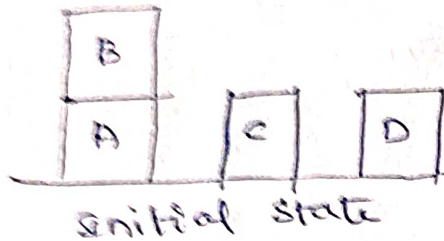 B
A C D
Initial State